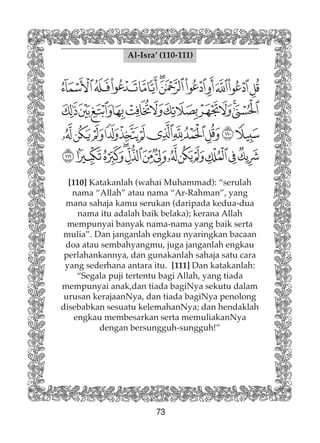 Al-Isra’ (110-111)
قُلِ ٱدْعُوا۟ ٱللَّهَ أَوِ ٱدْعُوا۟ ٱلرَّحْمَٰنَ أَيًّا مَّا تَدْعُوا۟ فَلَهُ ٱلْأَسْمَآءُ
ٱلْحُسْنَىٰ وَلَا تَجْهَرْ بِصَلَاتِكَ وَلَا تُخَافِتْ بِهَا وَٱبْتَغِ بَيْنَ ذَٰلِكَ
سَبِيلًا ١١٠ وَقُلِ ٱلْحَمْدُ لِلَّهِ ٱلَّذِى لَمْ يَتَّخِذْ وَلَدًا وَلَمْ يَكُن لَّهُۥ
شَرِيكٌ فِى ٱلْمُلْكِ وَلَمْ يَكُن لَّهُۥ وَلِىٌّ مِّنَ ٱلذُّلِّ وَكَبِّرْهُ تَكْبِيرًا ١١١
[110] Katakanlah (wahai Muhammad): “serulah
nama “Allah” atau nama “Ar-Rahman”, yang
mana sahaja kamu serukan (daripada kedua-dua
nama itu adalah baik belaka); kerana Allah
mempunyai banyak nama-nama yang baik serta
mulia”. Dan janganlah engkau nyaringkan bacaan
doa atau sembahyangmu, juga janganlah engkau
perlahankannya, dan gunakanlah sahaja satu cara
yang sederhana antara itu. [111] Dan katakanlah:
“Segala puji tertentu bagi Allah, yang tiada
mempunyai anak,dan tiada bagiNya sekutu dalam
urusan kerajaanNya, dan tiada bagiNya penolong
disebabkan sesuatu kelemahanNya; dan hendaklah
engkau membesarkan serta memuliakanNya
dengan bersungguh-sungguh!”
73